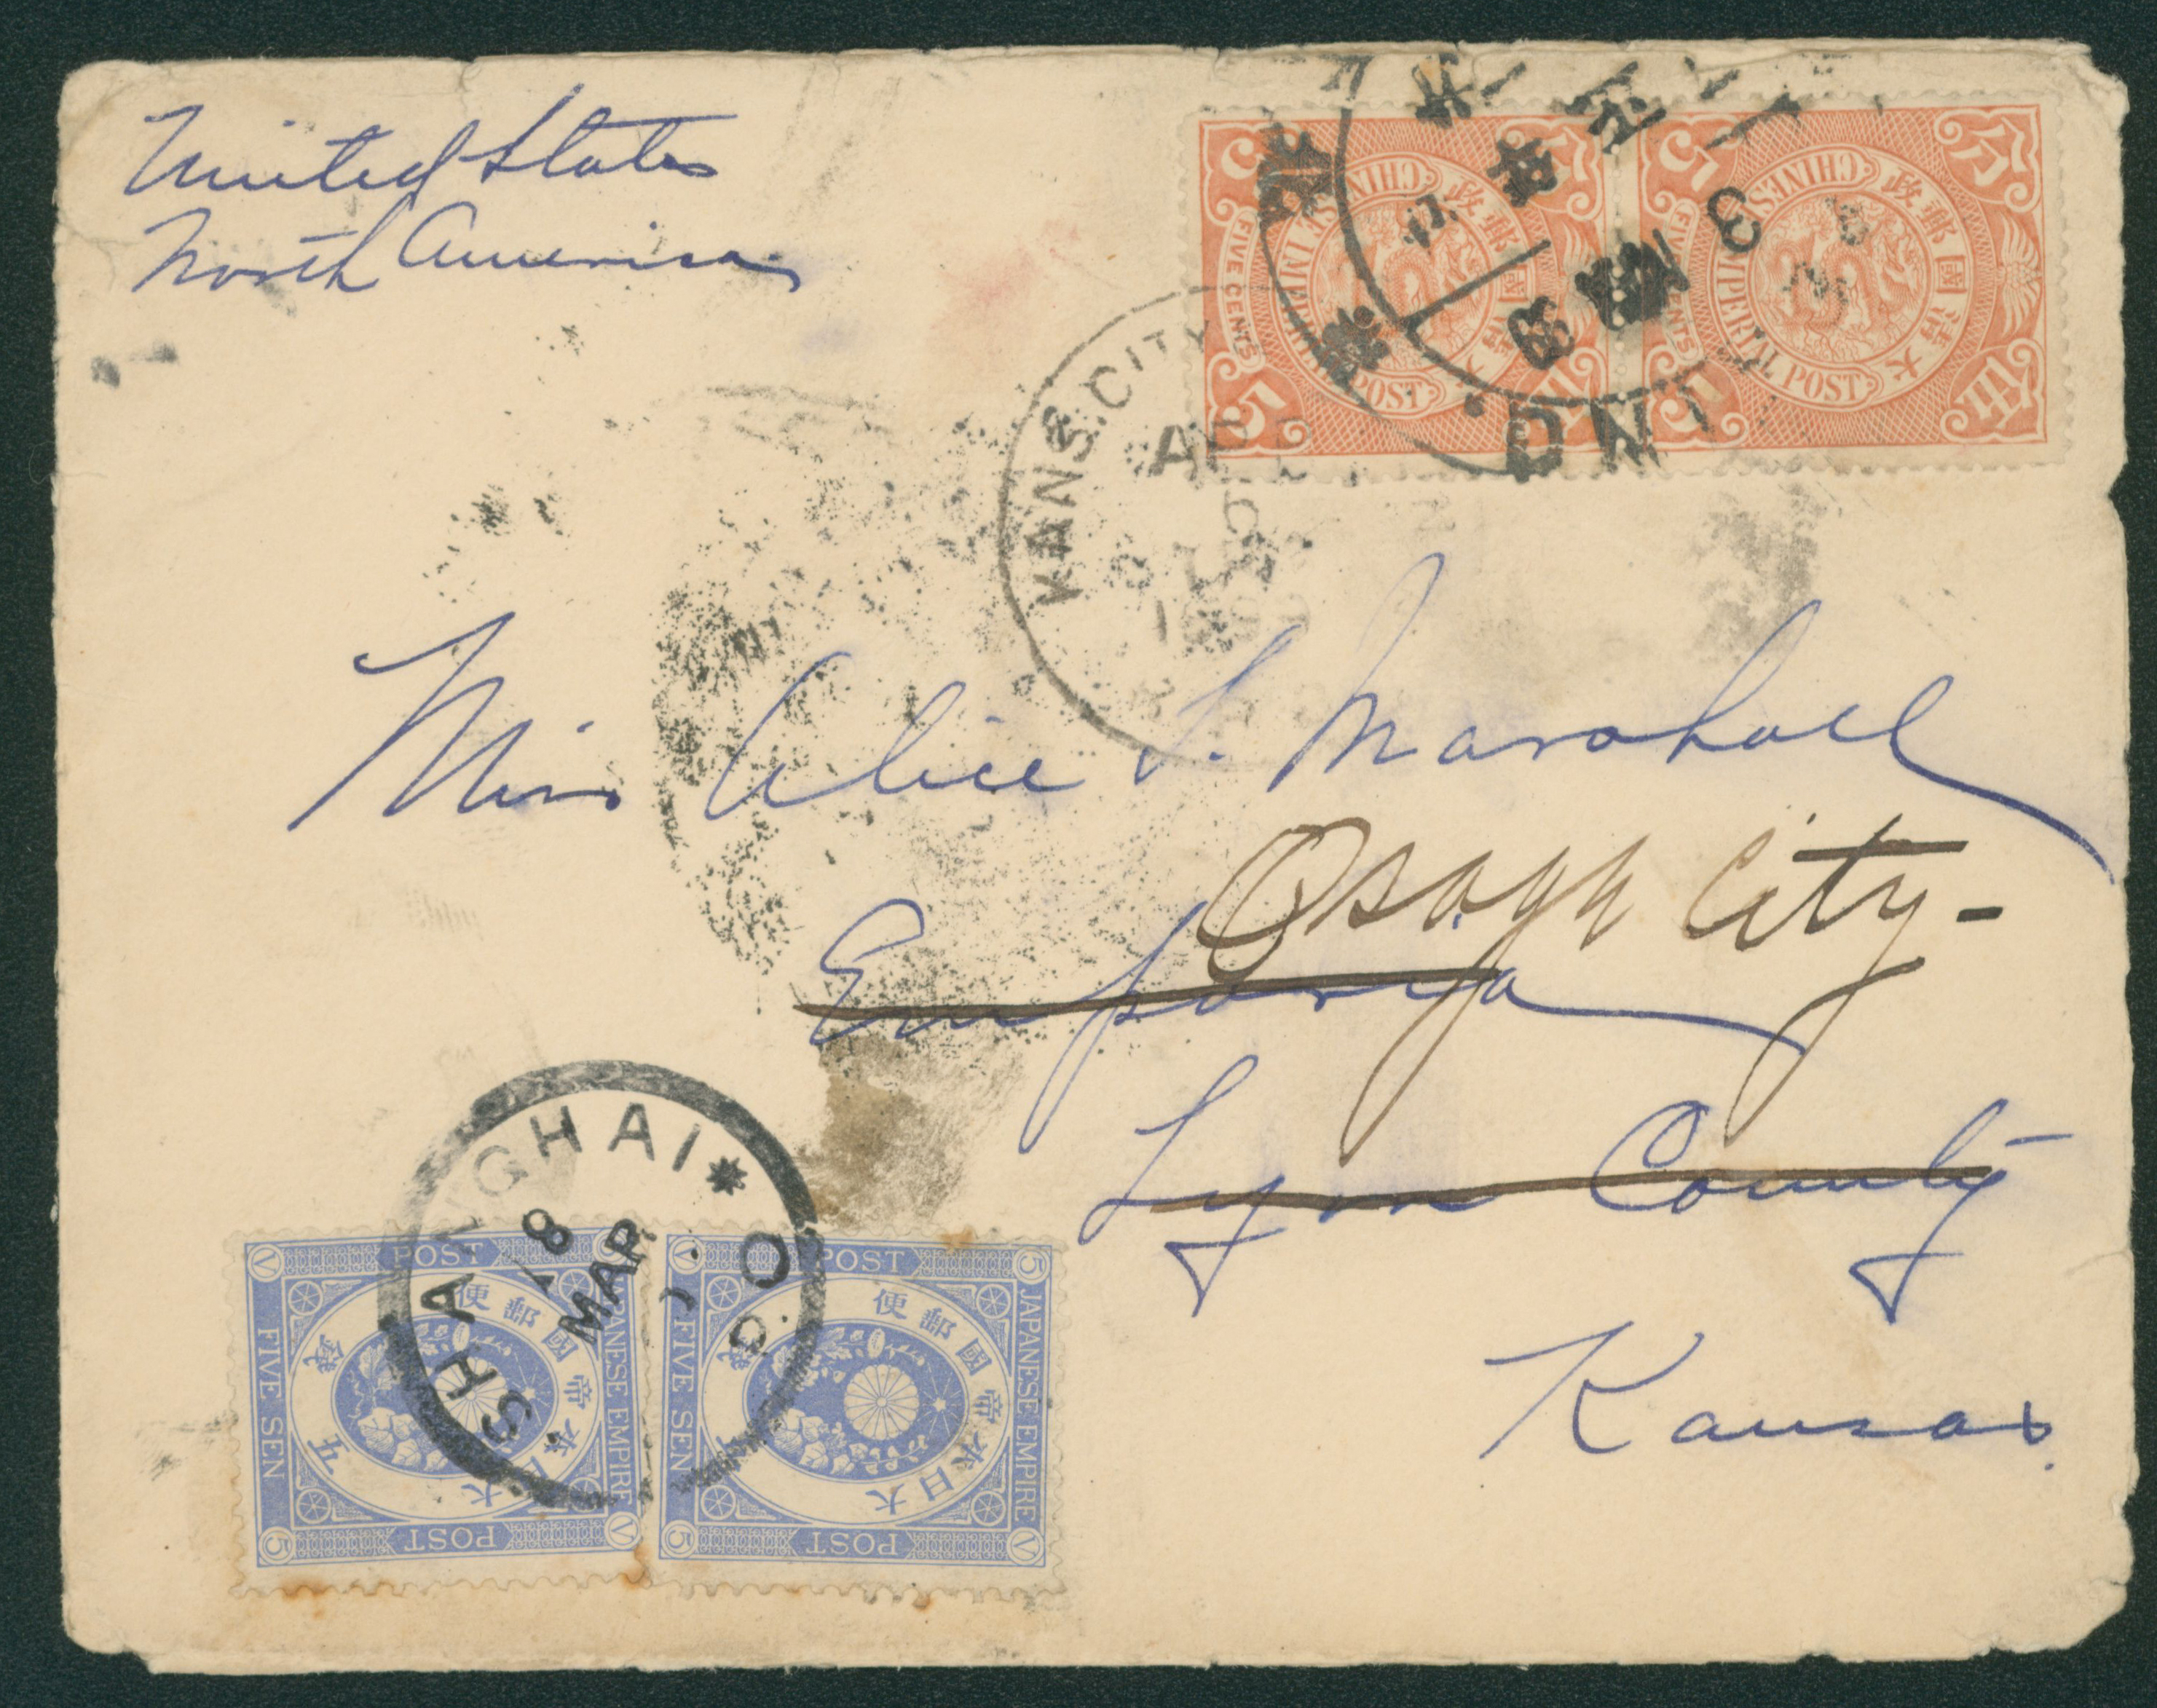 United States
North America
分 5 CHINESE IMPERIAL POST 大清國郵政 FIVE CENTS 5 伍
分 5 CHINESE IMPERIAL POST 大清國郵政 FIVE CENTS 5 伍
3
KANS. CITY
Miss Alice L. Marshall
Osage City-
Emporia
Lyon County
Kansas.
SHANGHAI
I.J.P.O
8
MAR
V POST 5 JAPANESE EMPIRE FIVE SEN 大日本帝國郵便 五錢 5 POST V
V POST 5 JAPANESE EMPIRE FIVE SEN 大日本帝國郵便 五錢 5 POST V